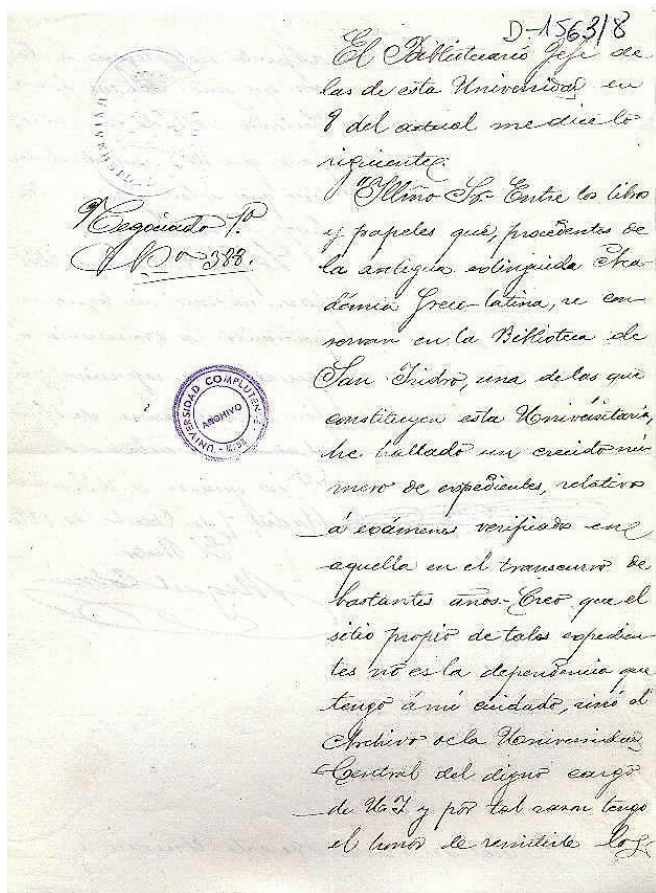 D-1563/8
El Bibliotecario Jefe de
las de esta Universidad en
9 del actual me dice lo
siguiente:
"Illmo Sr.- Entre los libros
y papeles que, procedentes de
la antigua extinguida Aca-
démia Greco-latina, se con-
servan en la Biblioteca de
San Isidro, una de las que
constituyen esta Universitaria,
he hallado un crecido nú-
mero de expedientes, relativos
á exámenes verificados en
aquella en el transcurso de
bastantes años.- Creo que el
sitio propio de tales expedien-
tes no es la dependencia que
tengo á mi cuidado, sinó el
Archivo de la Universidad
Central del digno cargo
de V.I. y por tal razon tengo
el honor de remitirle los
Negociado 1.º
Nº 388.
UNIVERSIDAD COMPLUTENSE
ARCHIVO